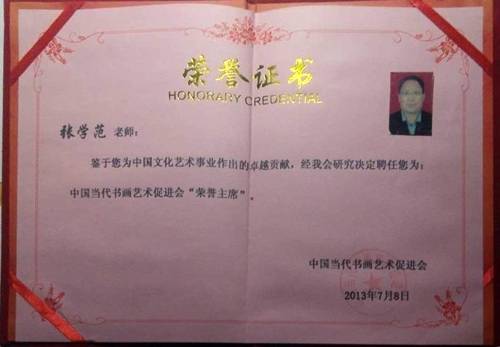 荣誉证书
HONORARY CREDENTIAL
张学范 老师：
鉴于您为中国文化艺术事业作出的卓越贡献，经我会研究决定聘任您为：
中国当代书画艺术促进会“荣誉主席”。
中国当代书画艺术促进会
2013年7月8日